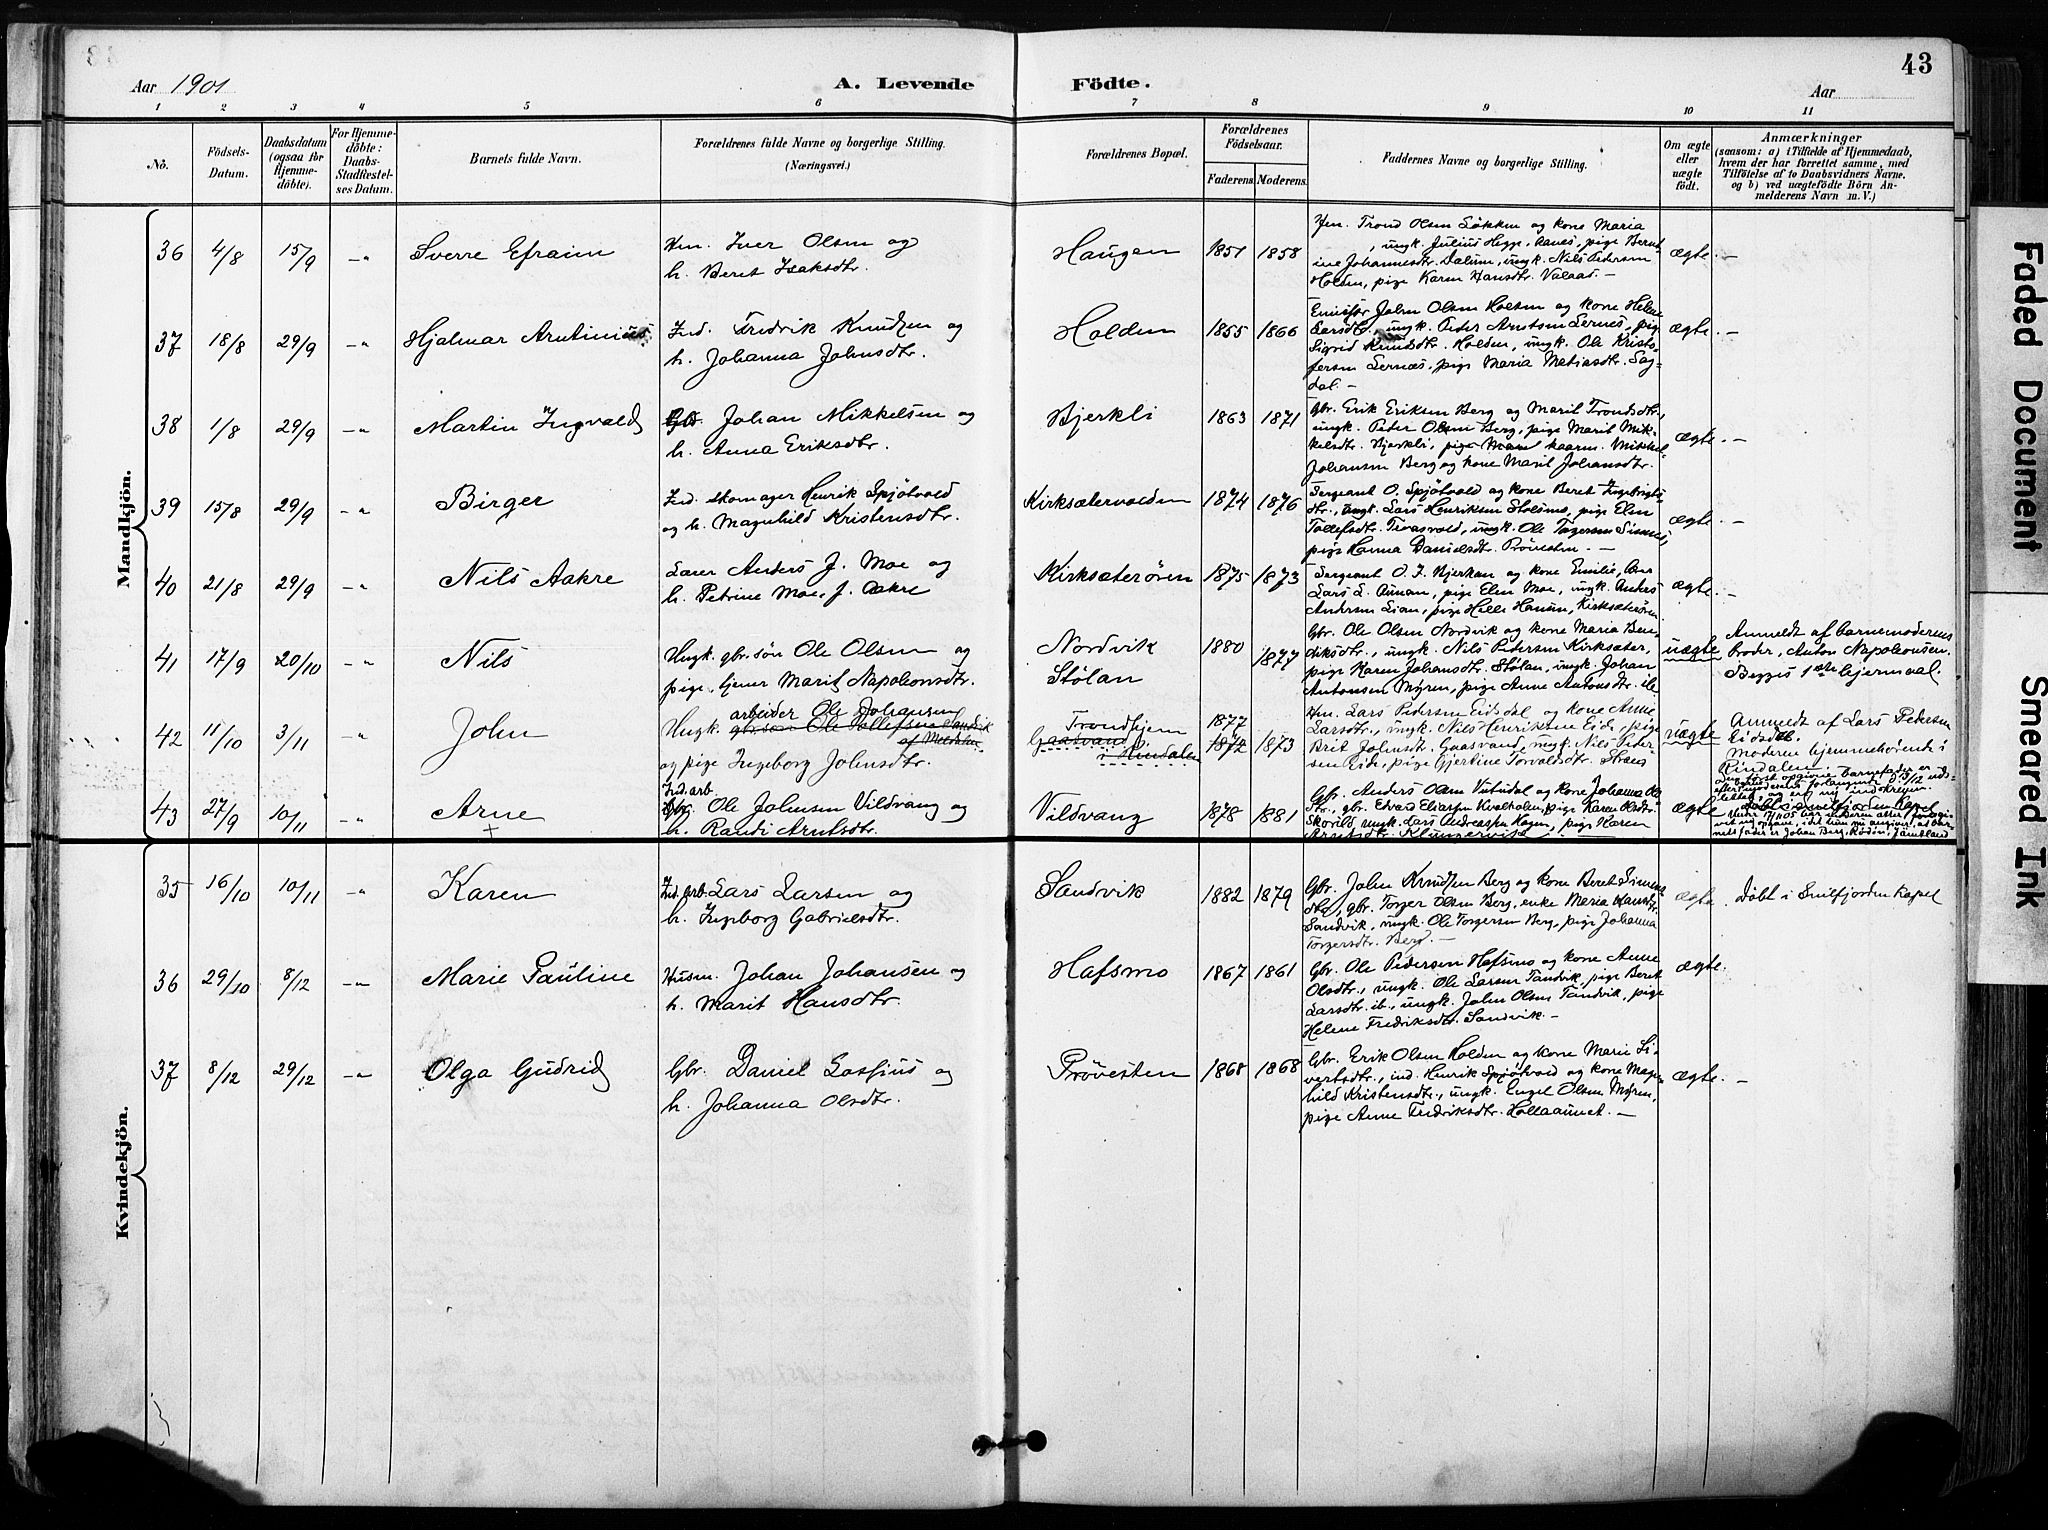 43
Aar 1901
A. Levende Födte.
Aar
1 2 3 4 5 6 7 8 9 10 11
No.
Födsels-Datum.
Daabsdatum (ogsaa for Hjemmedöbte).
For Hjemmedöbte: Daabs-Stadfæstelses Datum.
Barnets fulde Navn.
Forældrenes fulde Navne og borgerlige Stilling.
(Næringsvei.)
Forældrenes Bopæl.
Forældrenes Födselsaar.
Faderens. Moderens.
Faddernes Navne og borgerlige Stilling.
Om ægte eller uægte födt.
Anmærkninger
(saasom: a) i Tilfælde af Hjemmedaab,
hvem der har forrettet samme, med
Tilföielse af to Daabsvidners Navne,
og b) ved uægtefödte Börn An-
melderens Navn m. V.)
Mandkjön.
36 4/8 15/9 -"- Sverre Efraim
Hm. Iver Olsen og
h. Beret Isaksdtr.
Haugen 1851 1858
Hm. Trond Olsen Løkken og kone Maria
, ungk. Julius Aanes, pige Bernt-
ine Johannesdtr. Dalum, ungk. Nils Pedersen
Holden, pige Karen Hansdtr. Valaas –
ægte. –
37 18/8 29/9 -"- Hjalmar Arntinius
Ind. Fredrik Knudsen og
h. Johanna Johnsdtr.
Holden 1855 1866
John Olsen Holden og kone Helene
Larsdtr., ungk. Peder Arntsen Lernes, pig
Sigrid Knudsdtr. Holden, ungk. Ole Krist-
fersen Lernæs, pige Maria Matiasdtr. Sag-
dal. –
ægte. –
38 1/8 29/9 -"- Martin Ingvald
Gbr. Johan Mikkelsen og
h. Anna Eriksdtr.
Bjerkli 1863 1871
Gbr. Erik Eriksen Berg og Marit Trondsdtr.,
ungk. Peder Olsen Berg, pige Marit Mik-
kelsdtr. Bjerkli, pige kaarm. Mikkel
Johansen Berg og kone Marit Johansdtr.
ægte. –
39 15/8 29/9 -"- Birger
Ind. skomager Henrik Spjøtvold
og h. Magnhild Kristensdtr.
Kirksætervolden 1874 1876
Sergeant O. Spjøtvold og kone Beret Ingebrigts-
dtr., ungk. Lars Henriksen Stolsmo, pige Elen
Tollefsdtr. , ungk. Ole Torgersen Sinnes,
pige Hanna Danielsdtr. Prøvesten. –
ægte. –
40 21/8 29/9 -"- Nils Aakre
Lærer Anders J. Moe og
h. Petrine Moe, f. Aakre
Kirksæterøren 1875 1873
Sergeant O. J. Bjerkan og kone Emilie,
Lars L. Aunan, pige Elen Moe, ungk. Anders
Andersen Lian, pige Helle Hamn, Kirksæterøren
ægte. –
41 17/9 20/10 -"- Nils
Ungk. gbr.søn Ole Olsen og
pige, tjener Marit Napoleonsdtr.
Nordvik
Stølan
1880 1877
Gbr. Ole Olsen Nordvik og kone Maria Ben-
diksdtr., ungk. Nils Pedersen Kirksæter,
pige Karen Johansdtr. Stølan, ungk. Johan
Antonsen Myren, pige Anne Antonsdtr. ib
uægte
Anmeldt af barnemoderens
broder, Anton Napoleonsen.
Begges 1ste leiermaal.
42 11/10 3/11 -"- John
arbeider Ole Johansen
Ungk. gbr.søn Ole Tollefsen Sandvik
af Meldalen
og pige Ingeborg Johnsdtr.
Trondhjem
Gaasvand
i Rindalen
1877
1872 1873
Hm. Lars Pedersen Eidsdal og kone Anne
Larsdtr., ungk. Nils Henriksen Eide, pige
Brit Johnsdtr. Gaasvand, ungk. Nils Peder-
sen Eide, pige Gjertine Torvaldsdtr. Strøm
uægte
Anmeldt af Lars Pedersen
Eidsdal.
Moderen hjemmehørende i
Rindalen.
43 27/9 10/11 -"- Arne
+
Ind. arb.
Gbr. Ole Johnsen Vildvang og
h. Randi Arntsdtr.
Vildvang 1878 1881
Gbr. Anders Olsen Vutudal og kone Johanna Ols-
dtr., gbr. Edvard Eliassen Kvalholm, pige Karen Olsdtr.
Skorild, ungk. Lars Andreassen Hagen, pige Maren
Arntsdtr. Klungervik
ægte
Døbt i Snilfjorden Kapel
Kvindekjön.
35 16/10 10/11 -"- Karen
Ind. arb. Lars Larsen og
h. Ingeborg Gabrielsdtr.
Sandvik 1882 1879
Gbr. John Knudsen Berg og kone Beret Simons-
dtr., gbr. Torger Olsen Berg, enke Maria Hansdtr.
Sandvik, ungk. Ole Torgersen Berg, pige Johanna
Torgersdtr. Berg. –
ægte.
Døbt i Snilfjorden kapel
36 29/10 8/12 -"- Marie Pauline
Husm. Johan Johansen og
h. Marit Hansdtr.
Hafsmo 1867 1861
Gbr. Ole Pedersen Hafsmo og kone Anne
Olsdtr., ungk. Ole Larsen Tandvik, pige Beret
Larsdtr. ib., ungk. John Olsen Tandvik, pige
Helene Fredriksdtr. Sandvik. –
ægte.
37 8/12 29/12 -"- Olga Gudrid
Gbr. Daniel Lossius og
h. Johanna Olsdtr.
Prøvesten 1868 1868
Gbr. Erik Olsen Holden og kone Marie Si-
vertsdtr., ind. Henrik Spjøtvold og kone Magn-
hild Kristensdtr., ungk. Engel Olsen Myren,
pige Anne Fredriksdtr. Hollaaunet. –
ægte. –
Faded Document
Smeared Ink